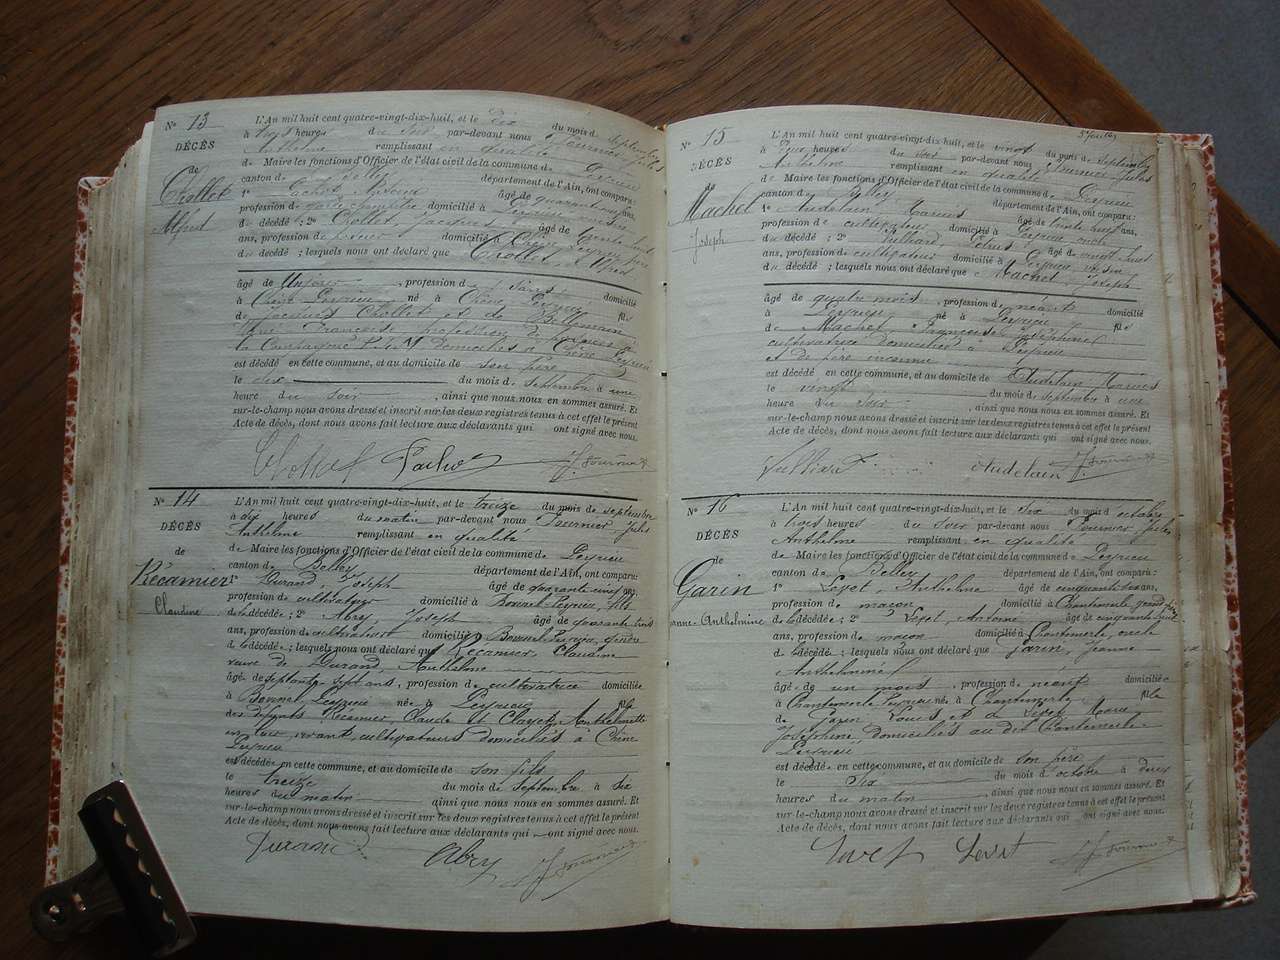 N° 13
DÉCÈS
de
Chollet
Alfred
L'An mil huit cent quatre-vingt-dix-huit, et le six du mois de septembre
à trois heures du soir par-devant nous Fournier Jules
Anthelme remplissant en qualité
de Maire les fonctions d'Officier de l'état civil de la commune de Peyrieu
canton de Belley département de l'Ain, ont comparu:
1° Pachot âgé de quarante ans,
profession de garde champêtre domicilié à Peyrieu
du décédé; 2° Chollet, Jacques âgé de trente huit
ans, profession de domicilié à Chêne, Peyrieu père
du décédé; lesquels nous ont déclaré que Chollet, Alfred
âgé de un jour, profession de sans domicilié
à Chêne Peyrieu né à Chêne Peyrieu fils
de Jacques Chollet et de
Françoise, profession
la Compagnie P.L.M domiciliés à Chêne Peyrieu
est décédé en cette commune, et au domicile de son père
le six du mois de septembre à une
heure du soir, ainsi que nous nous en sommes assuré. Et
sur-le-champ nous avons dressé et inscrit sur les deux registres tenus à cet effet le présent
Acte de décès, dont nous avons fait lecture aux déclarants qui ont signé avec nous.
Chollet Pachot J Fournier
N° 14
DÉCÈS
de
Récamier
Claudine
L'An mil huit cent quatre-vingt-dix-huit, et le treize du mois de septembre
à dix heures du matin par-devant nous Fournier Jules
Anthelme remplissant en qualité
de Maire les fonctions d'Officier de l'état civil de la commune de Peyrieu
canton de Belley département de l'Ain, ont comparu:
1° Durand, Joseph âgé de quarante cinq ans,
profession de cultivateur domicilié à Bonnel Peyrieu, fils
de la décédée; 2° Abry, Joseph âgé de quarante trois
ans, profession de cultivateur domicilié à Bonnel Peyrieu, gendre
de la décédée; lesquels nous ont déclaré que Récamier, Claudine
veuve de Durand, Anthelme
âgée de septante sept ans, profession de cultivatrice domiciliée
à Bonnel, Peyrieu née à Peyrieu fille
des défunts Récamier, Claude et Clayet, Anthelmette
en leur vivant cultivateurs domiciliés à Chêne
Peyrieu
est décédée en cette commune, et au domicile de son fils
le treize du mois de Septembre à six
heures du matin, ainsi que nous nous en sommes assuré. Et
sur-le-champ nous avons dressé et inscrit sur les deux registres tenus à cet effet le présent
Acte de décès, dont nous avons fait lecture aux déclarants qui ont signé avec nous.
Durand Abry J Fournier
N° 15
DÉCÈS
de
Machel
Joseph
L'An mil huit cent quatre-vingt-dix-huit, et le vingt du mois de Septembre
à deux heures du soir par-devant nous Fournier Jules
Anthelme remplissant en qualité
de Maire les fonctions d'Officier de l'état civil de la commune de Peyrieu
canton de Belley département de l'Ain, ont comparu:
1° Audelain Marius âgé de trente neuf ans,
profession de cultivateur domicilié à Peyrieu oncle
du décédé; 2° Vulliard, âgé de vingt huit
ans, profession de cultivateur domicilié à Peyrieu voisin
du décédé; lesquels nous ont déclaré que Machel, Joseph
âgé de quatre mois, profession de néant domicilié
à Peyrieu, né à Peyrieu fils
de Machel, Françoise Joséphine
cultivatrice domiciliée à Peyrieu
et de père inconnu
est décédé en cette commune, et au domicile de Audelain Marius
le vingt du mois de septembre à une
heure du soir, ainsi que nous nous en sommes assuré. Et
sur-le-champ nous avons dressé et inscrit sur les deux registres tenus à cet effet le présent
Acte de décès, dont nous avons fait lecture aux déclarants qui ont signé avec nous.
Vulliard Audelain J Fournier
N° 16
DÉCÈS
de
Garin
Jeanne-Anthelmine
L'An mil huit cent quatre-vingt-dix-huit, et le six du mois d octobre
à trois heures du soir par-devant nous Fournier Jules
Anthelme remplissant en qualité
de Maire les fonctions d'Officier de l'état civil de la commune de Peyrieu
canton de Belley département de l'Ain, ont comparu:
1° Levet, Anthelme âgé de cinquante ans,
profession de maçon domicilié à Chantemerle grand père
de la décédée; 2° Levet, Antoine âgé de cinquante huit
ans, profession de maçon domicilié à Chantemerle, oncle
de la décédée; lesquels nous ont déclaré que Garin, Jeanne
Anthelmine
âgée de un mois, profession de néant domiciliée
à Chantemerle Peyrieu née à Chantemerle fille
de Garin, Louis, et de Levet Marie,
Joséphine, domiciliés au dit Chantemerle
Peyrieu
est décédée en cette commune, et au domicile de son père
le six du mois d octobre à deux
heures du matin, ainsi que nous nous en sommes assuré. Et
sur-le-champ nous avons dressé et inscrit sur les deux registres tenus à cet effet le présent
Acte de décès, dont nous avons fait lecture aux déclarants qui ont signé avec nous.
Levet Levet J Fournier